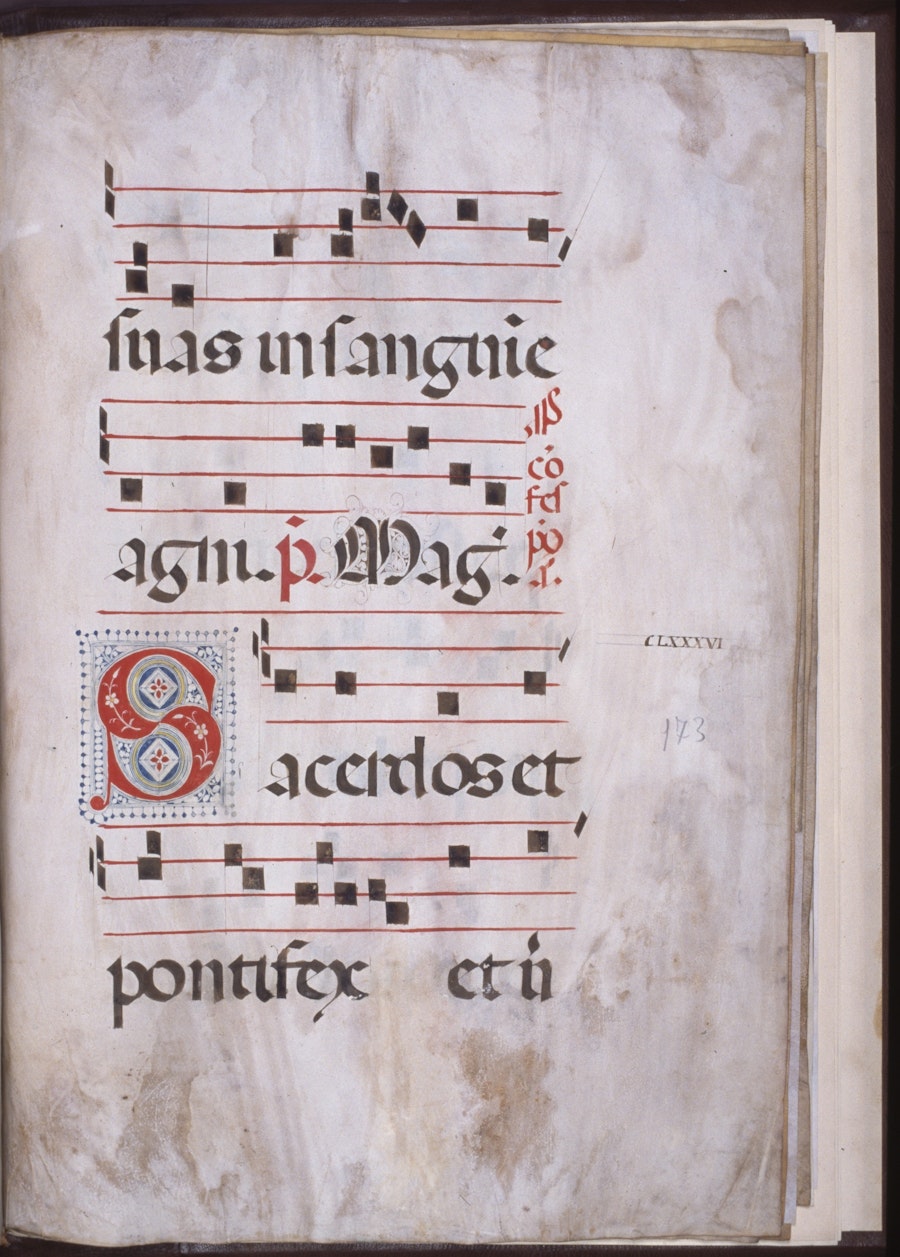 suas in sanguīe
agni. p̄. Maḡ.
cō
fes
po
CLXXXVI
173
Sacerdos et
pontifex et ii